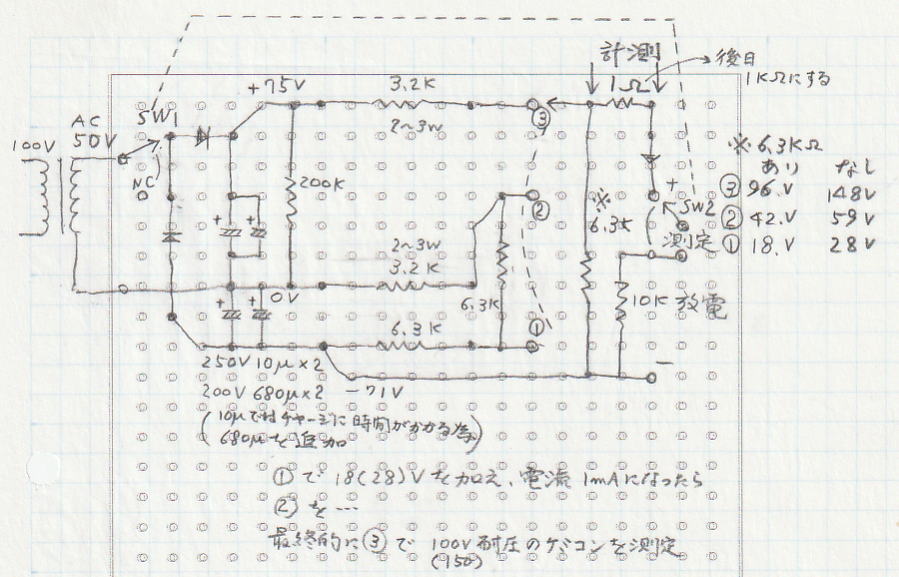 計測
+75V
3.2K
1Ω
後日
1KΩにする
SW1
AC
50V
100V
2~3W
③
※ 6.3KΩ
あり なし
③ 96.V 148V
② 42.V 59V
① 18.V 28V
NC
200K
②
※
6.3K
+
SW2
測定
+ +
2~3W
3.2K
6.3K
10K 放電
0V
+ +
6.3K
①
−
250V 10μ×2
200V 680μ×2
−71V
(10μではチャージに時間がかかる為
680μを追加)
①で18(28)Vを加え、電流1mAになったら
②を…
最終的に③で100V耐圧のケミコンを測定
(150)